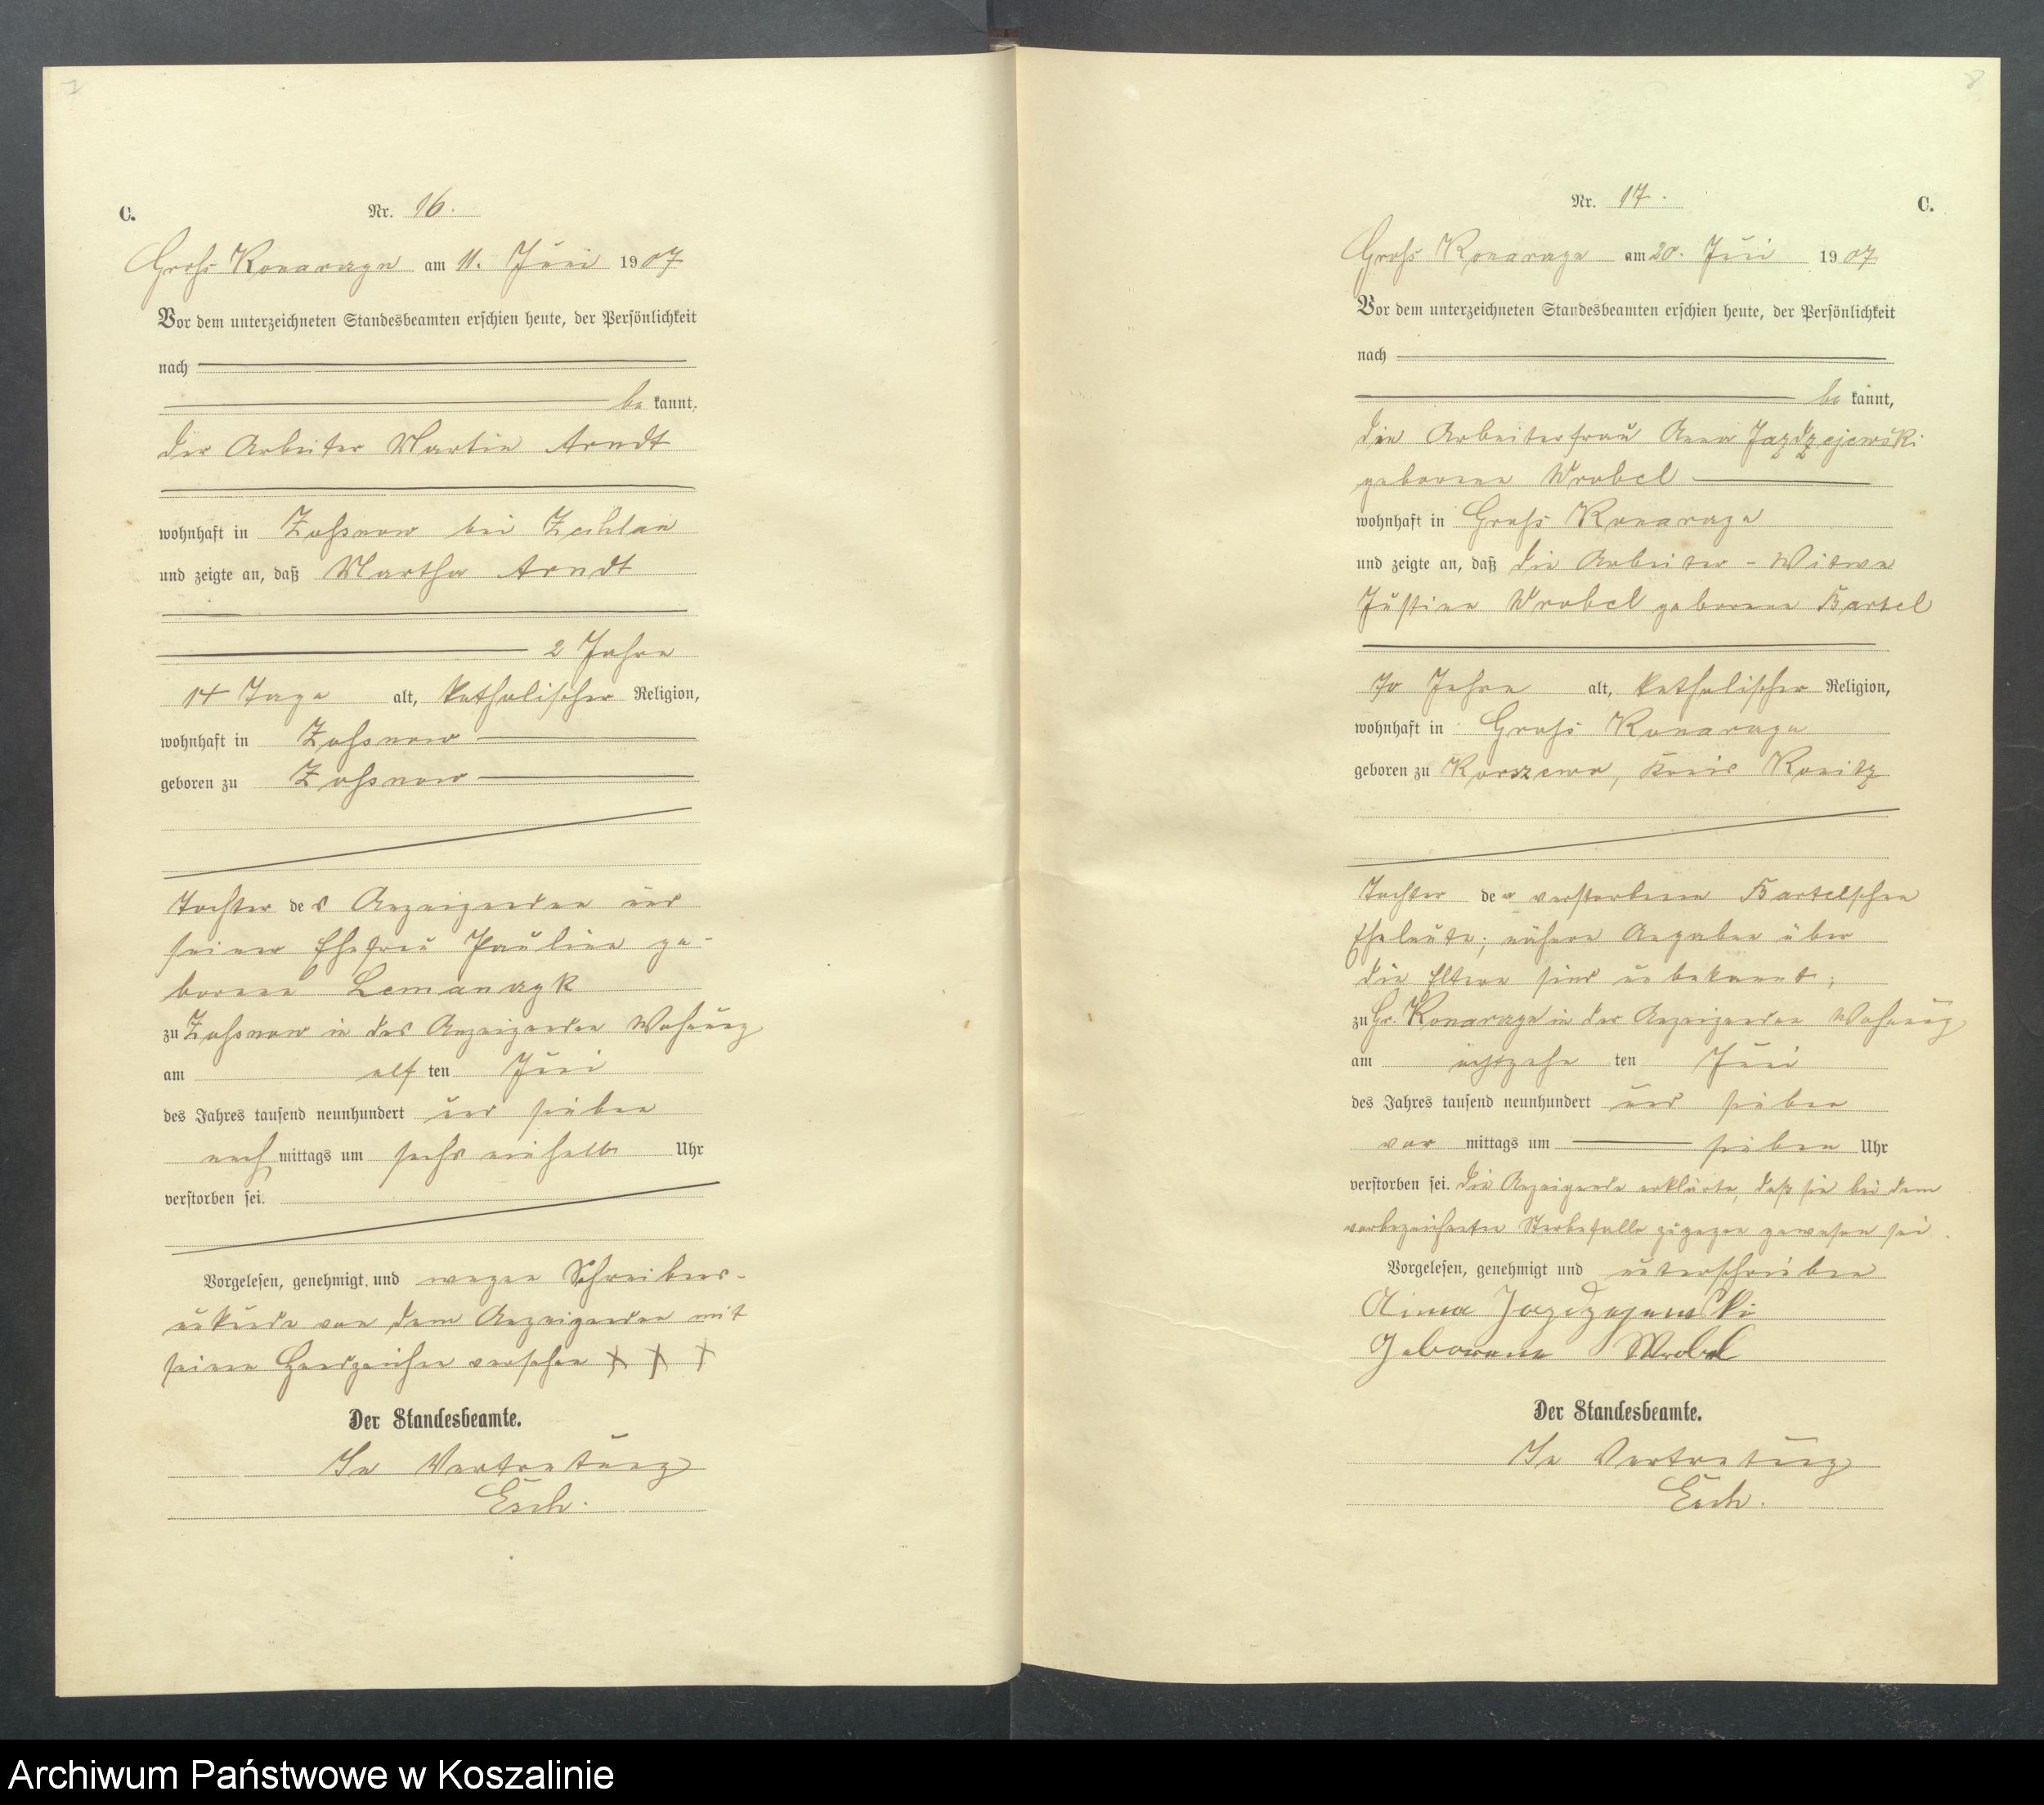 C.
Nr. 16.
Groß Konarzyn am 11. Juni 1907
Vor dem unterzeichneten Standesbeamten erschien heute, der Persönlichkeit
nach
be kannt,
der Arbeiter Martin Arndt
wohnhaft in Zoßnow bei Zechlau
und zeigte an, daß Martha Arndt
2 Jahre
14 Tage alt, katholischer Religion,
wohnhaft in Zoßnow
geboren zu Zoßnow
Tochter des Anzeigenden und
seiner Ehefrau Pauline ge-
borene Lemanczyk
zu Zoßnow in des Anzeigenden Wohnung
am elf ten Juni
des Jahres tausend neunhundert und sieben
nach mittags um sechs einhalb Uhr
verstorben sei.
Vorgelesen, genehmigt und wegen Schreibens-
unkunde von dem Anzeigenden mit
seinen Handzeichen versehen + + +
Der Standesbeamte.
In Vertretung
Esch.
Nr. 17.
C.
Groß Konarzyn am 20. Juni 1907
Vor dem unterzeichneten Standesbeamten erschien heute, der Persönlichkeit
nach
be kannt,
die Arbeiterfrau Anna Jazdzejewski
geborene Wrobel
wohnhaft in Groß Konarzyn
und zeigte an, daß die Arbeiter-Witwe
Justine Wrobel geborene Bartel
70 Jahre alt, katholischer Religion,
wohnhaft in Groß Konarzyn
geboren zu Kreis Konitz
Tochter der verstorbenen Bartelschen
Eheleute; nähere Angaben über
die Eltern sind unbekannt;
zu Gr. Konarzyn in der Anzeigenden Wohnung
am ten Juni
des Jahres tausend neunhundert und sieben
vor mittags um sieben Uhr
verstorben sei. Die Anzeigende erklärte, daß sie bei dem
vorbezeichneten Sterbefalle zugegen gewesen sei.
Vorgelesen, genehmigt und unterschrieben
Anna Jazdzejewski
Geborene Wrobel
Der Standesbeamte.
In Vertretung
Esch.
Archiwum Państwowe w Koszalinie